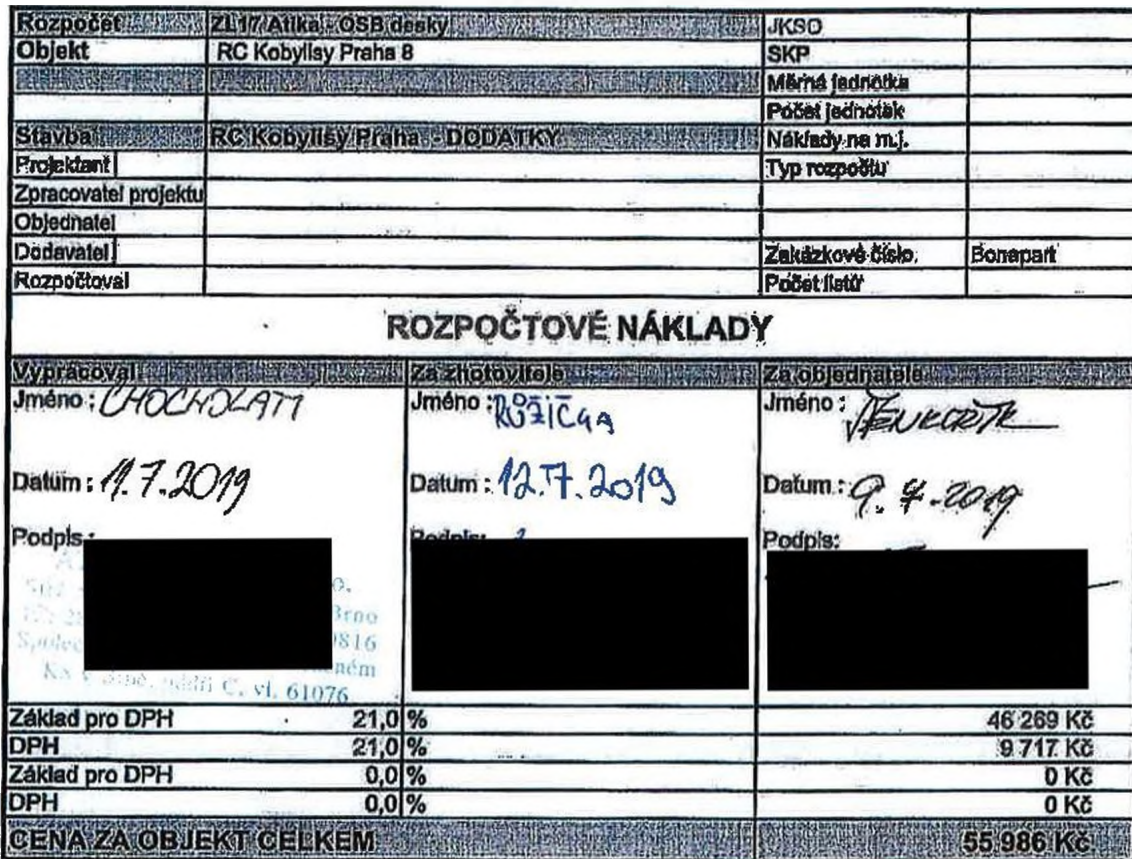 Rozpočet ZL17 Atika - OSB desky JKSO
Objekt RC Kobylisy Praha 8 SKP
Měrná jednotka
Počet jednotek
Stavba RC Kobylisy Praha - DODATKY Náklady na m.j.
Projektant Typ rozpočtu
Zpracovatel projektu
Objednatel
Dodavatel Zakázkové číslo Bonapart
Rozpočtoval Počet listů
ROZPOČTOVÉ NÁKLADY
Vypracoval Za zhotovitele Za objednatele
Jméno : CHOCHOLATÝ Jméno : RŮŽIČKA Jméno :
Datum : 11.7.2019 Datum : 12.7.2019 Datum : 9.7.2019
Podpis : Podpis: Podpis:
Brno
Společ 9816
KS v Brně, oddíl C, vl. 61076
Základ pro DPH 21,0 % 46 269 Kč
DPH 21,0 % 9 717 Kč
Základ pro DPH 0,0 % 0 Kč
DPH 0,0 % 0 Kč
CENA ZA OBJEKT CELKEM 55 986 Kč